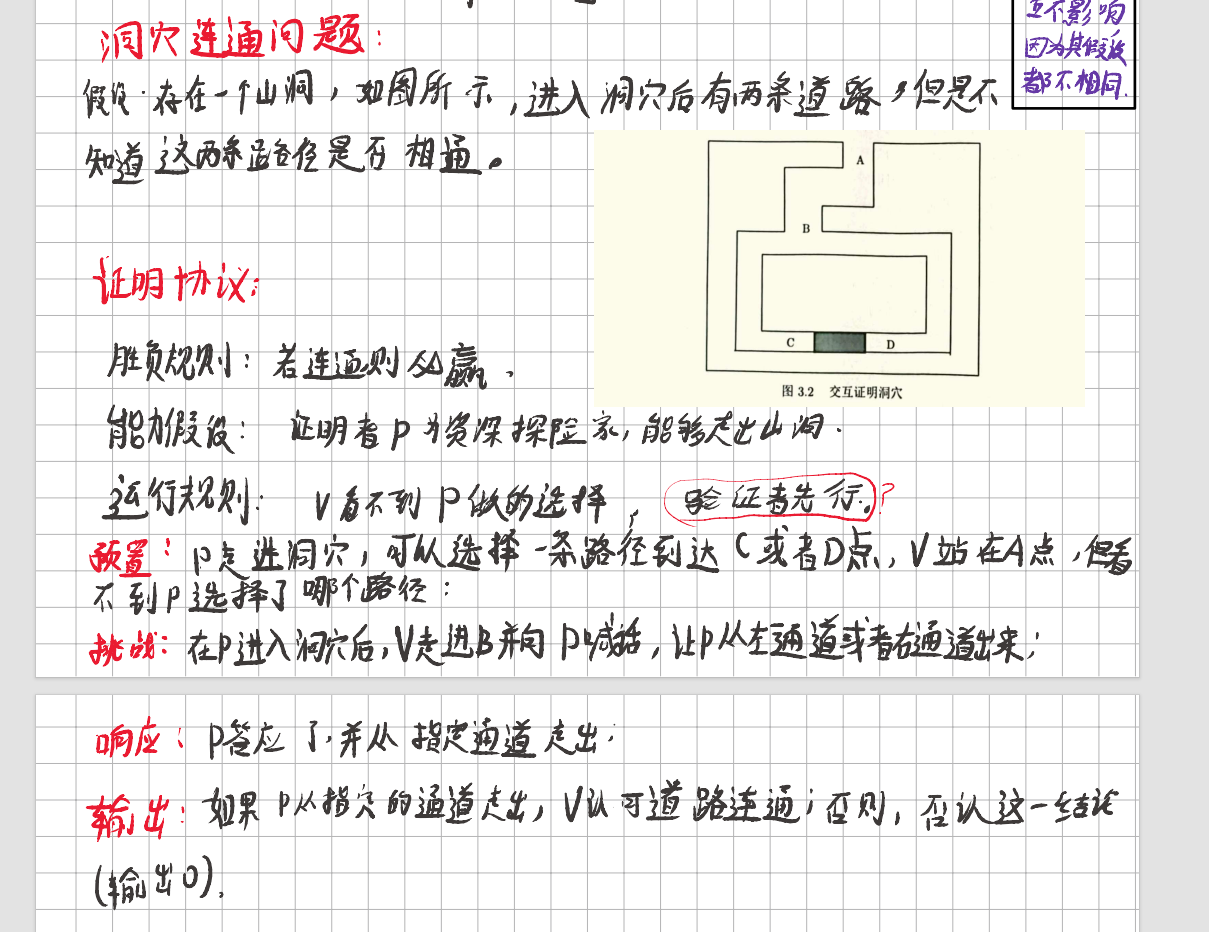 互不影响
因为其假设
都不相同.
洞穴连通问题:
假设:存在一个山洞,如图所示,进入洞穴后有两条道路,但是不
知道这两条路径是否相通。
A
B
C
D
图 3.2 交互证明洞穴
证明协议:
胜负规则: 若连通则 赢.
能力假设: 证明者P为资深探险家,能够走出山洞.
运行规则: V看不到P做的选择, 验证者先行.?
预置: P走进洞穴,可以选择一条路径到达C或者D点,V站在A点,但看
不到P选择了哪个路径:
挑战: 在P进入洞穴后,V走进B并向P喊话,让P从左通道或者右通道出来;
响应: P答应了,并从指定通道走出;
输出: 如果P从指定的通道走出,V认可道路连通;否则,否认这一结论
(输出0).